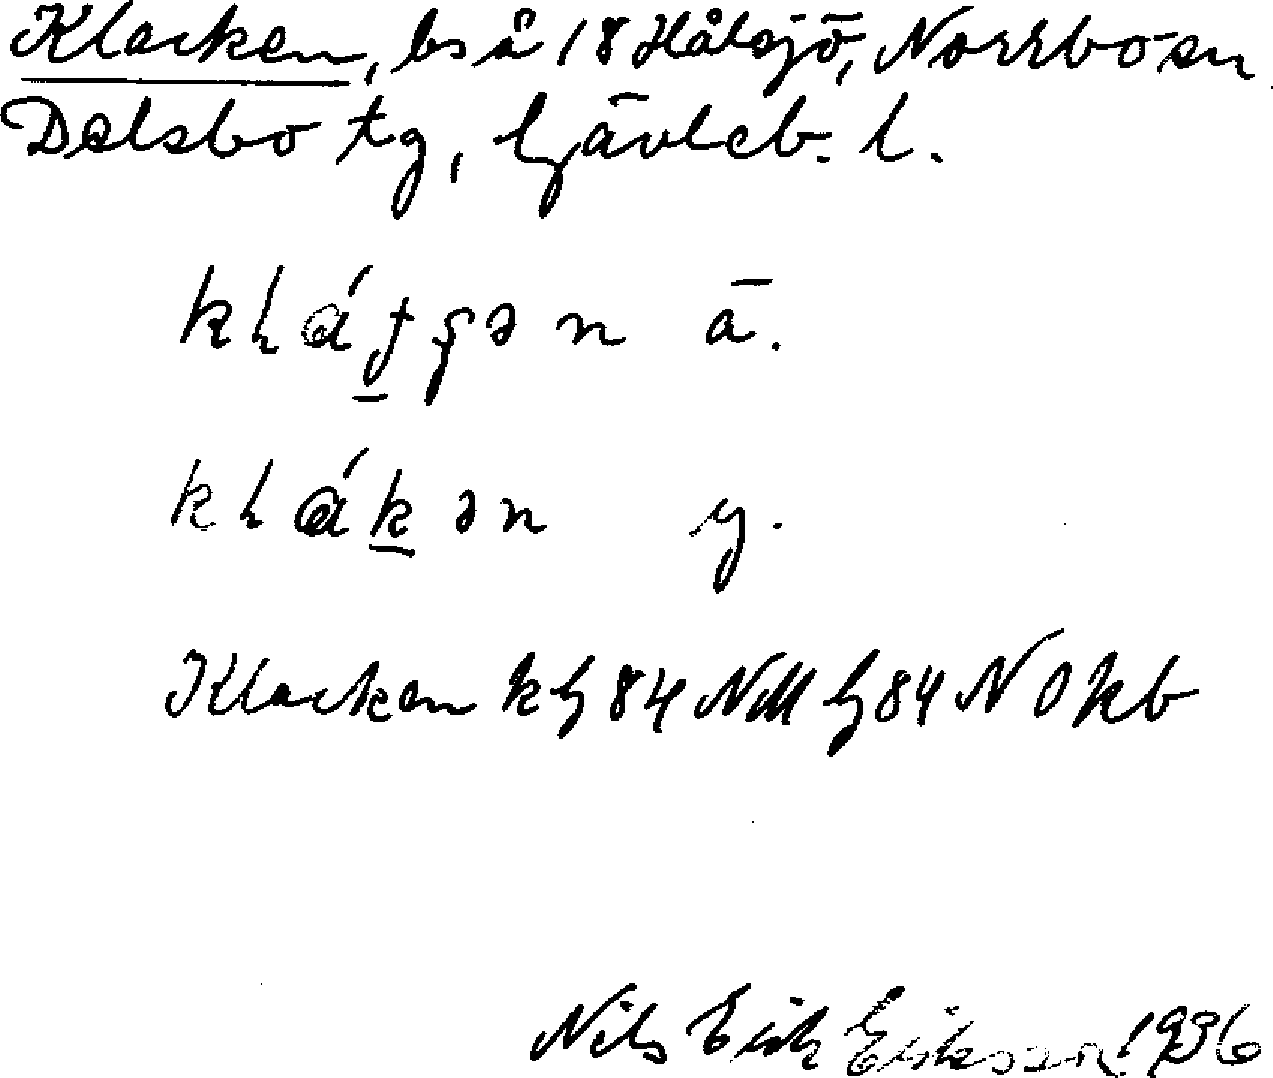 Klacken, bs å 18 Hålsjö, Norrbo sn
Delsbo tg, Gävleb. l.
ā.
y.
Klacken k G 84 NM G 84 N O kb
Nils Erik Eriksson 1936